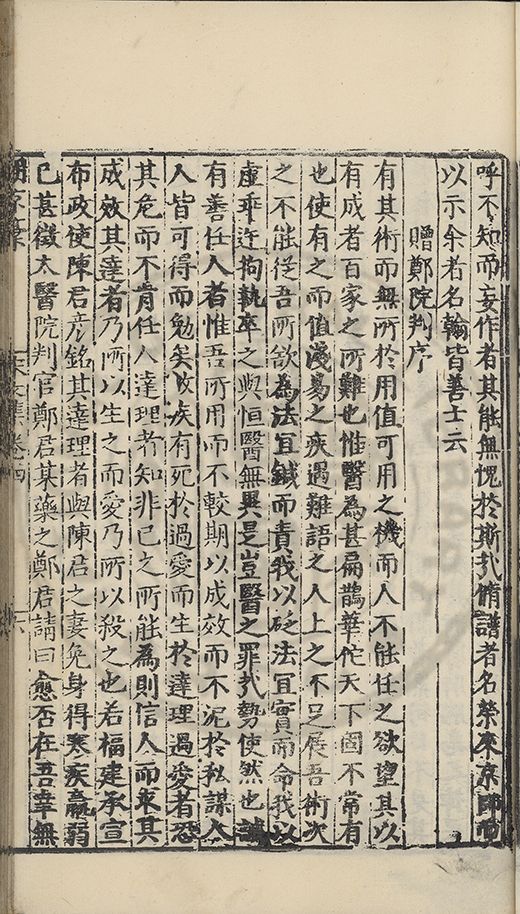 呼不知而妄作者其能無愧於斯㢤脩譜者名榮來京師而
以示余者名翰皆善士云
贈鄭院判序
有其術而無所於用值可用之機而人不能任之欲望其以
有成者百家之所難也惟醫為甚扁鵲華佗天下固不常有
也使有之而值淺易之疾遇難語之人上之不足展吾術次
之不能從吾所欲為法宜鍼而責我以砭法宜實而命我以
虛乖迕拘執卒之與恒醫無異是豈醫之罪㢤勢使然也誠
有善任人者惟吾所用而不較期以成效而不泥於私謀人
人皆可得而勉矣故疾有死於過愛而生於達理過愛者恐
其危而不肯任人達理者知非己之所能為則信人而取其
成效其達者乃所以生之而愛乃所以殺之也若福建承宣
布政使陳君彦銘其達理者與陳君之妻免身得寒疾羸弱
已甚徵太醫院判官鄭君某藥之鄭君請曰愈否在吾幸無
文集卷四